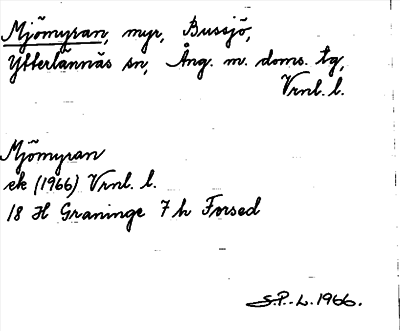 Mjömyran, myr, Bussjö,
Ytterlännäs sn, Ång. m. doms. tg,
Vrnl. l.
Mjömyran
ek (1966) Vrnl. l.
18 H Graninge 7 h Forsed
S.P.-L. 1966.